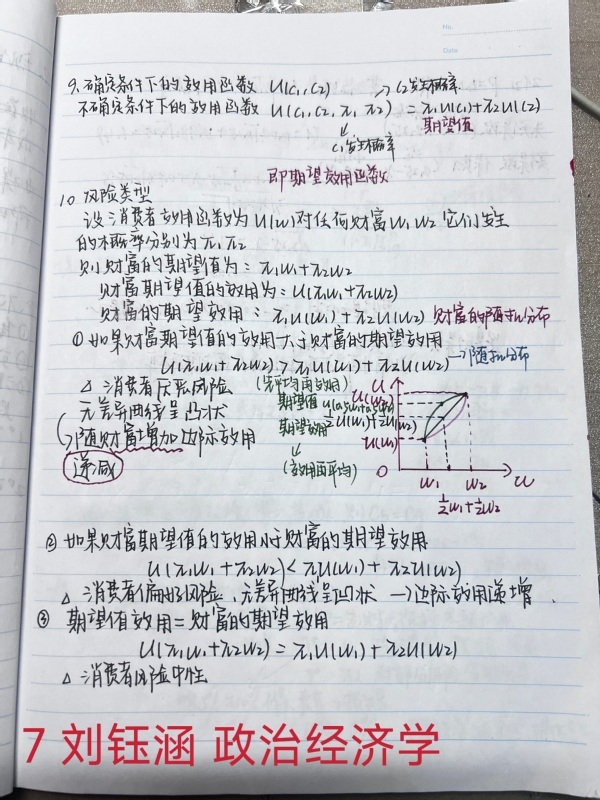 No.
Date
9. 确定条件下的效用函数 U(C₁,C₂) → C₂发生概率
不确定条件下的效用函数 U(C₁,C₂,π₁,π₂) = π₁U(C₁)+π₂U(C₂)
C₁发生概率
期望值
即期望效用函数
10 风险类型
设消费者效用函数为U(W)对任何财富W₁ W₂ 它们发生
的概率分别为π₁π₂
则财富的期望值为：π₁W₁+π₂W₂
财富期望值的效用为：U(π₁W₁+π₂W₂)
财富的期望效用：π₁U(W₁)+π₂U(W₂) 财富的随机分布
①如果财富期望值的效用大于财富的期望效用
U(π₁W₁+π₂W₂) > π₁U(W₁)+π₂U(W₂) → 随机分布
△ 消费者厌恶风险
无差异曲线呈凸状
→随财富增加边际效用
递减
(先平均再效用)
期望值
期望效用 ½U(W₁)+½U(W₂)
(效用再平均)
U
U(W₂)
U(W₁)
O W₁ W₂
½W₁+½W₂
② 如果财富期望值的效用小于财富的期望效用
U(π₁W₁+π₂W₂) < π₁U(W₁)+π₂U(W₂)
△ 消费者偏好风险，无差异曲线呈凹状 → 边际效用递增．
③ 期望值效用=财富的期望效用
U(π₁W₁+π₂W₂) = π₁U(W₁)+π₂U(W₂)
△ 消费者风险中性
7 刘钰涵 政治经济学